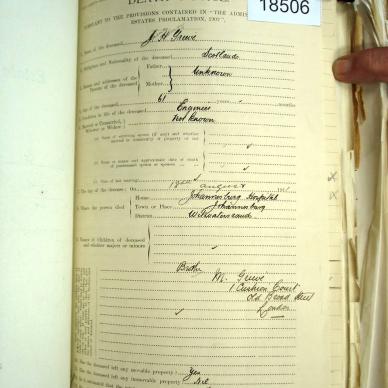 DEATH
18506
PURSUANT TO THE PROVISIONS CONTAINED IN "THE ADMIN
ESTATES PROCLAMATION, 1902".
Name of the deceased J. H. Greive
Birthplace and Nationality of the deceased Scotland
Names and addresses of the Parents of the deceased
Father
Mother
Unknown
Age of the deceased 61 years months
Condition in life of the deceased Engineer
Married or Unmarried, Widower or Widow Not Known
(a) Name of surviving spouse (if any) and whether married in community of property or not
(b) Name or names and approximate date of death of predeceased spouse or spouses
(c) Place of last marriage
The day of the decease: On August
Where the person died
House Johannesburg Hospital
Town or Place Johannesburg
District Witwatersrand
Names of children of deceased and whether majors or minors
Brother
M. Greive
1 Cushion Court
Old Broad Street
London
Has the deceased left any movable property? Yes
Has the deceased left any immovable property? Nil